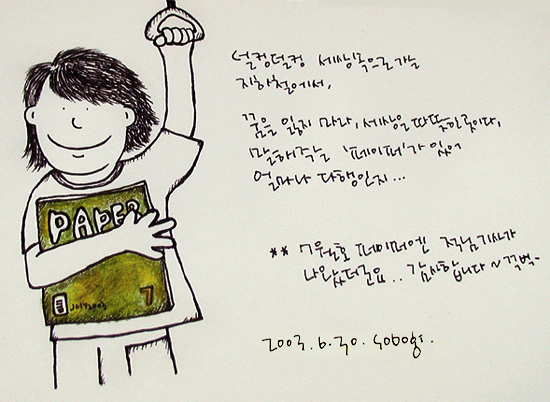 PAPER
JULY 2003
7
덜컹덜컹 세상속으로 가는
지하철에서,
꿈을 잃지 마라, 세상은 따뜻한 곳이다,
말해주는 '페이퍼'가 있어
얼마나 다행인지...
** 7월호 페이퍼엔
나왔더군요.. 감사합니다~ 꾸벅.
2003.6.30.